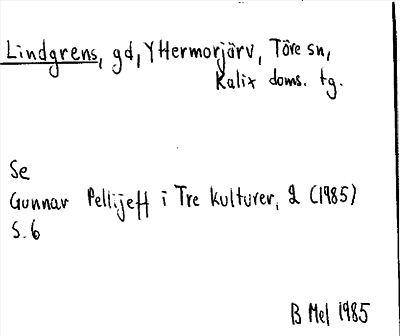 Lindgrens, gd, Y Hermorjärv, Töre sn,
Kalix doms. tg.
Se
Gunnar Pellijeff i Tre kulturer, 2 (1985)
S. 6
B Mel 1985